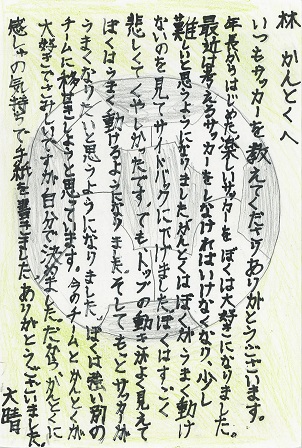 林 かんとくへ
いつもサッカーを教えてくださりありがとうございます。
年長からはじめた楽しいサッカーを、ぼくは大好きになりました。
最近は考えるサッカーをしなければいけなくなり、少し
難しいと思うようになりました。かんとくはぼくがうまく動け
ないのを見てサイドバックに下げました。ぼくはすごく
悲しくてくやしかたです。でも、トップの動きがよく見えて
ぼくはうまく動けるようになりました。そしてもっとサッカーが
うまくなりたいと思うようになりました。ぼくは強い別の
チームに移せきしようと思っています。今のチームとかんとくが
大好きでさみしいですが自分で決めました。だから、かんとくに
感しゃの気持ちで手紙を書きました。ありがとうございました。
大晴